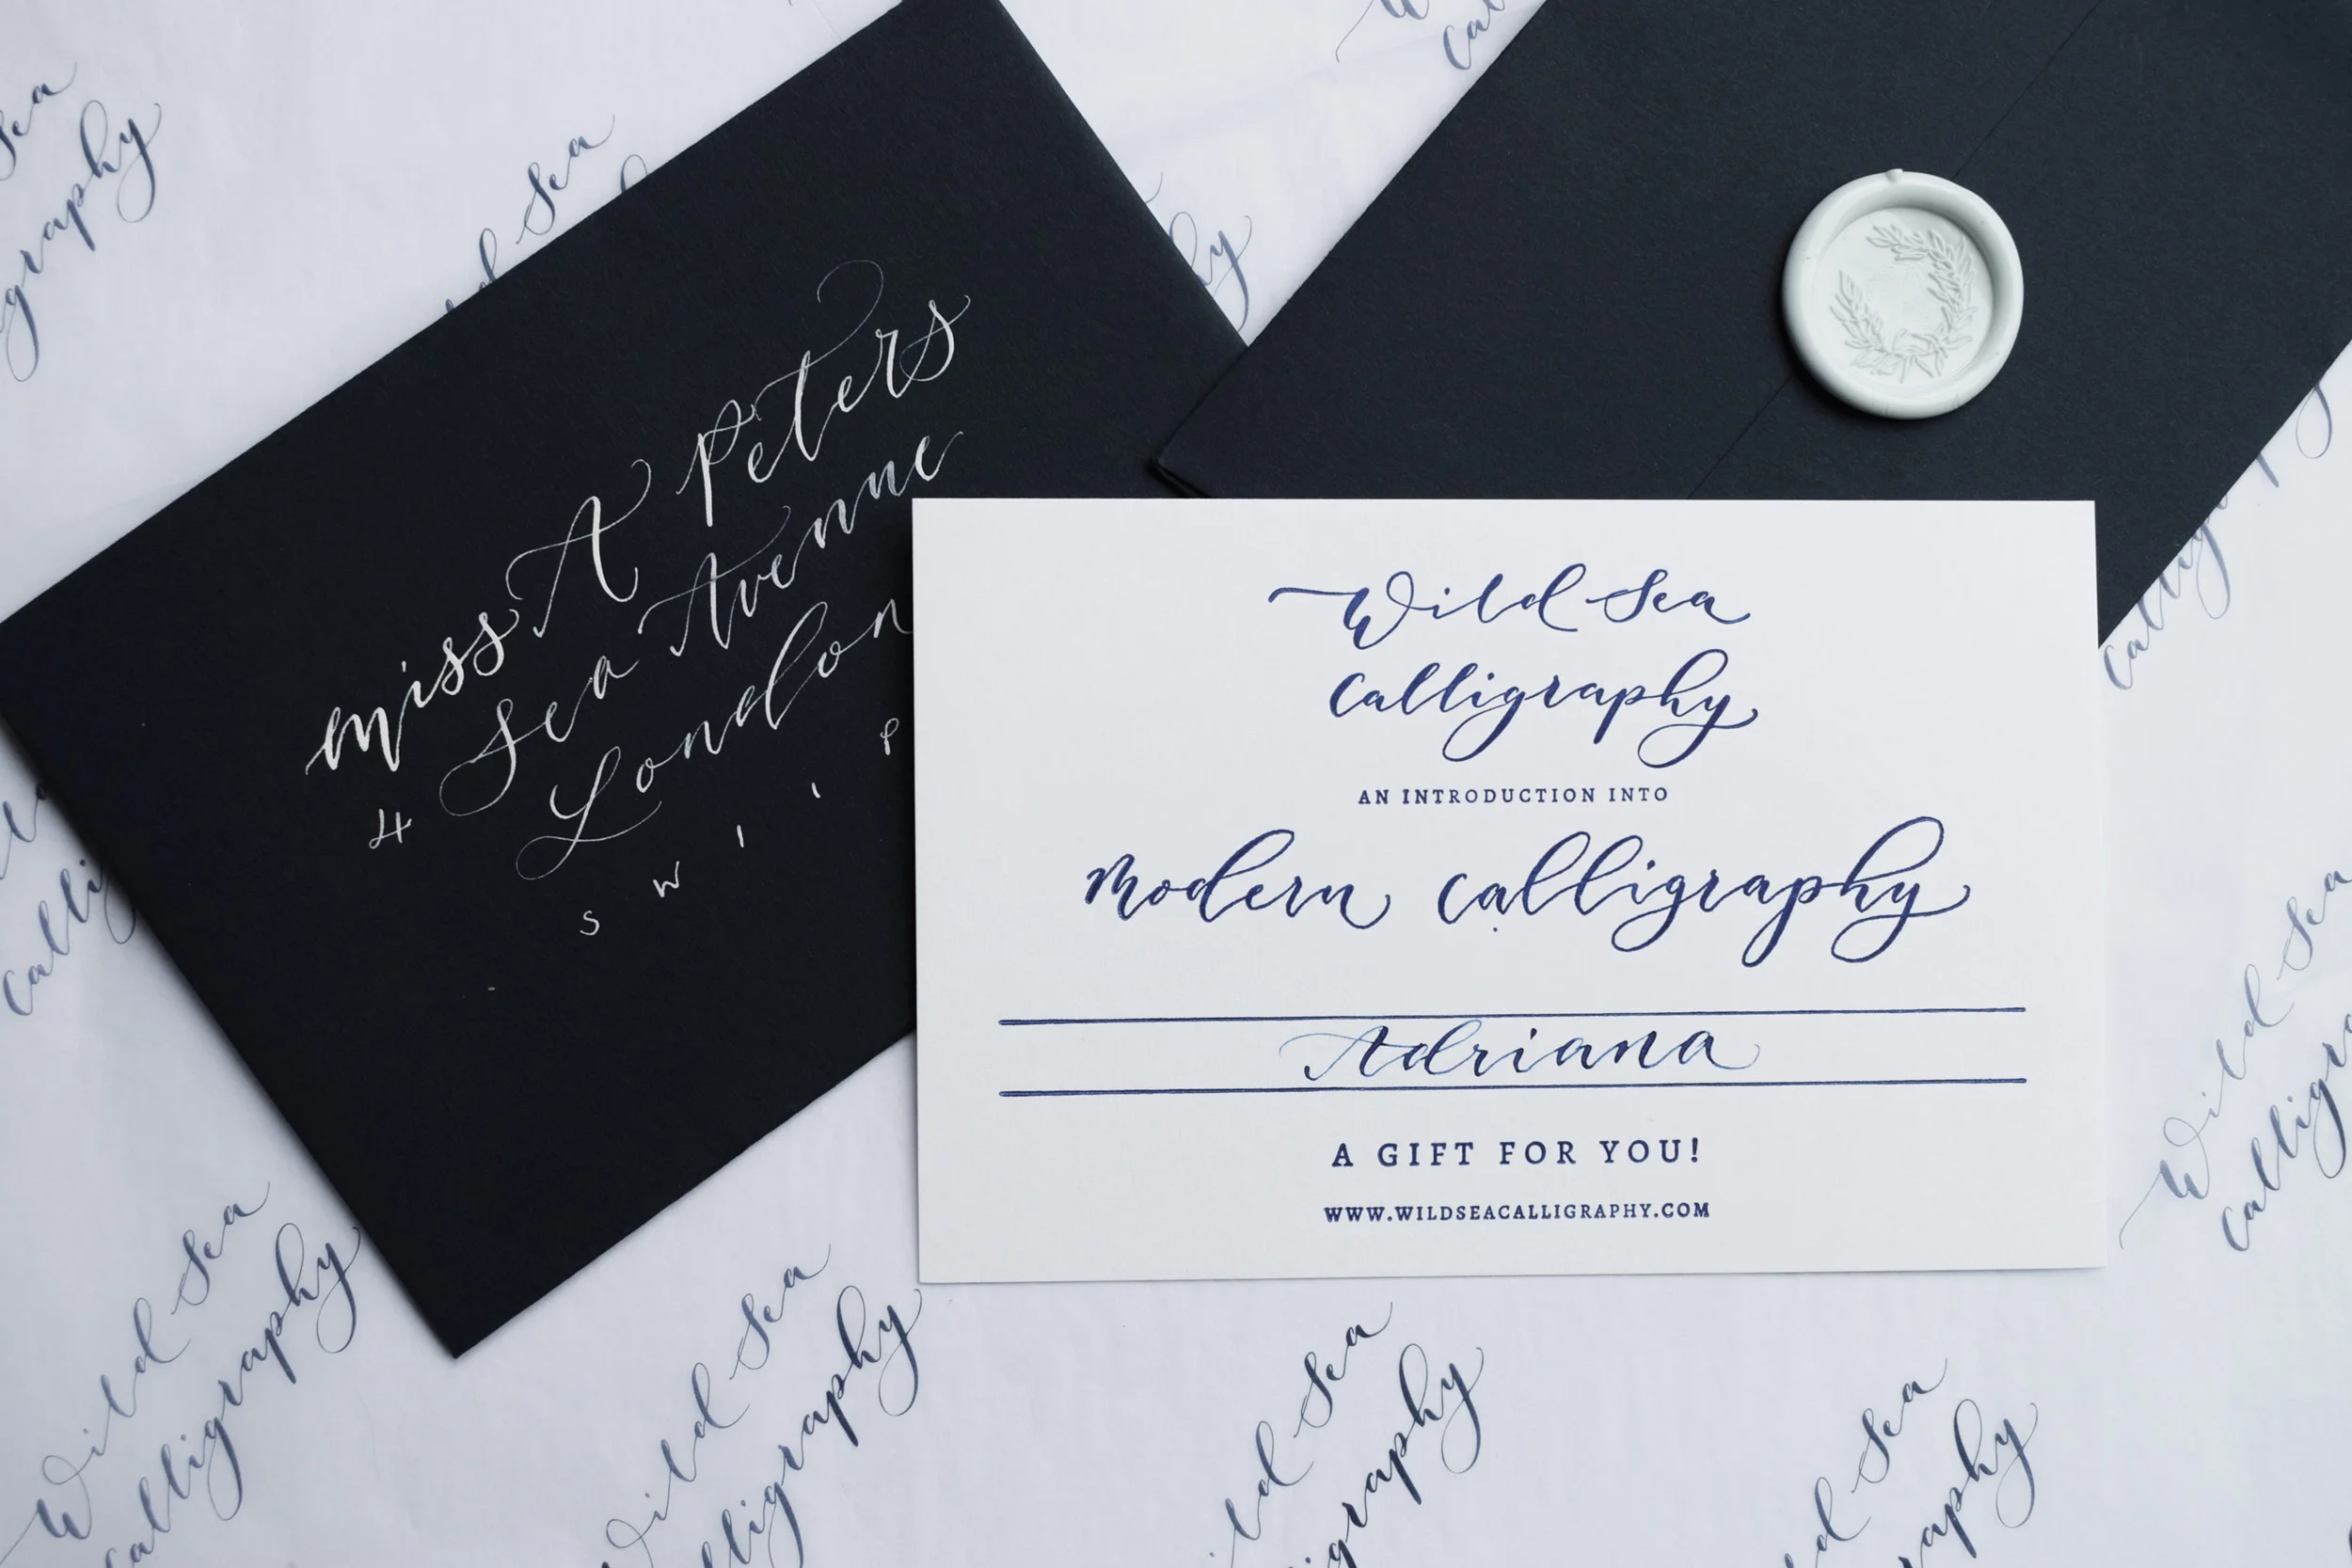 Miss A Peters
4 Sea Avenue
London
S W 1 1 P
Wild Sea
Calligraphy
AN INTRODUCTION INTO
Modern Calligraphy
Adriana
A GIFT FOR YOU!
WWW.WILDSEACALLIGRAPHY.COM
Sea
Sea
Calligraphy
Wild Sea
Calligraphy
Wild Sea
Calligraphy
Wild Sea
Calligraphy
Sea
Sea